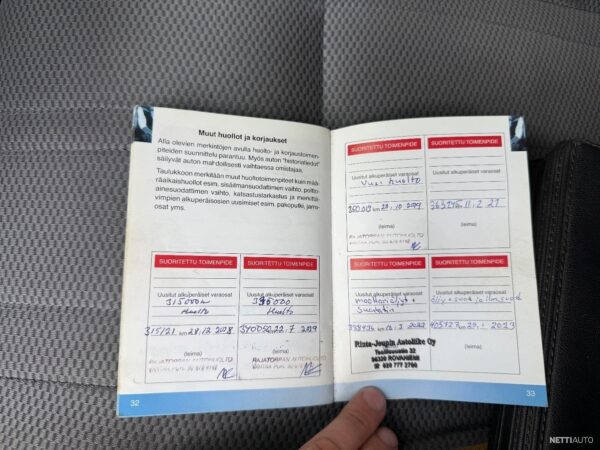 Muut huollot ja korjaukset
Alla olevien merkintöjen avulla huolto- ja korjaustoimen-
piteiden suunnittelu parantuu. Myös auton "historiatiedot"
säilyvät auton mahdollisesti vaihtaessa omistajaa.
Taulukkoon merkitään muut huoltotoimenpiteet kuin mää-
räaikaishuollot esim. sisäilmansuodattimen vaihto, poltto-
ainesuodattimen vaihto, katsastustarkastus ja merkittä-
vimpien alkuperäisosien uusimiset esim. pakoputki, jarru-
osat yms.
SUORITETTU TOIMENPIDE
Uusitut alkuperäiset varaosat
315000
Huolto
315121 km 28.12 2018
(leima)
RAJATORPAN AUTOHUOLTO
SUORITETTU TOIMENPIDE
Uusitut alkuperäiset varaosat
Huolto
340050 22.7 2019
(leima)
RAJATORPAN AUTOHUOLTO
32
SUORITETTU TOIMENPIDE
Uusitut alkuperäiset varaosat
Vuosi huolto
km 29.10
(leima)
RAJATORPAN AUTOHUOLTO
SUORITETTU TOIMENPIDE
Uusitut alkuperäiset varaosat
km 11.2 21
(leima)
SUORITETTU TOIMENPIDE
Uusitut alkuperäiset varaosat
moottoriöljyt +
Suodatin
km
Rinta-Joupin Autoliike Oy
Teollisuustie 32
96320 ROVANIEMI
☎ 020 777 2700
SUORITETTU TOIMENPIDE
Uusitut alkuperäiset varaosat
öljy + suod ja ilm.suod
405727 km 20.1 2023
(leima)
33
NETTIAUTO